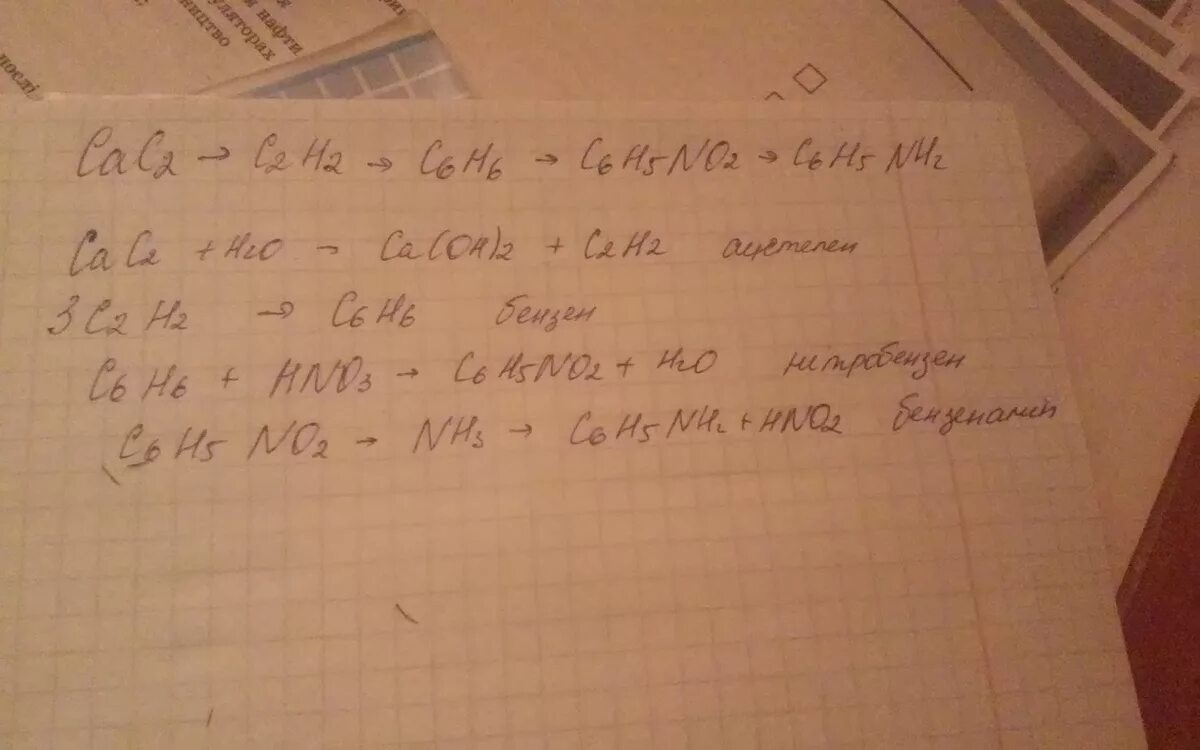 нафти
уляторах
ництво
послі
CaC2 → C2H2 → C6H6 → C6H5NO2 → C6H5NH2
CaC2 + H2O → Ca(OH)2 + C2H2 ацетелен
3C2H2 → C6H6 бензен
C6H6 + HNO3 → C6H5NO2 + H2O нітробензен
C6H5NO2 → NH3 → C6H5NH2 + HNO2 бензенамін